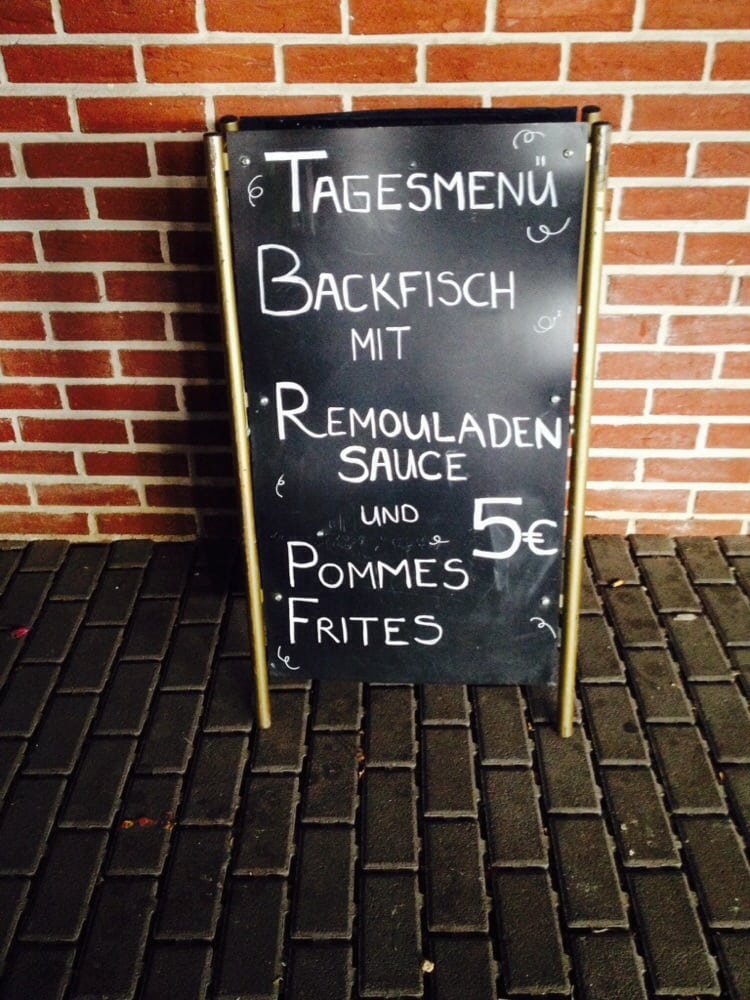 TAGESMENÜ
BACKFISCH
MIT
REMOULADEN
SAUCE
UND
5€
POMMES
FRITES